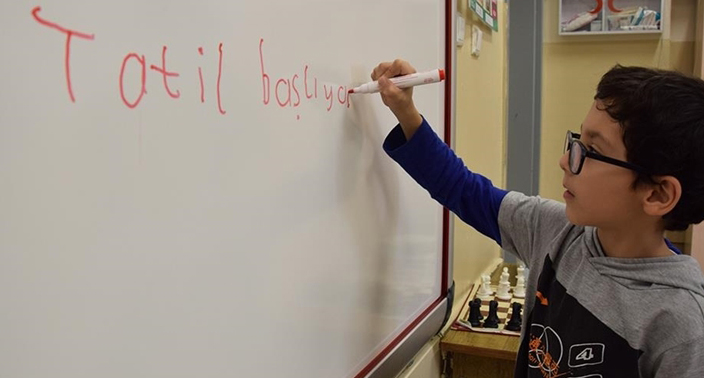 Tatil başlıyo
4